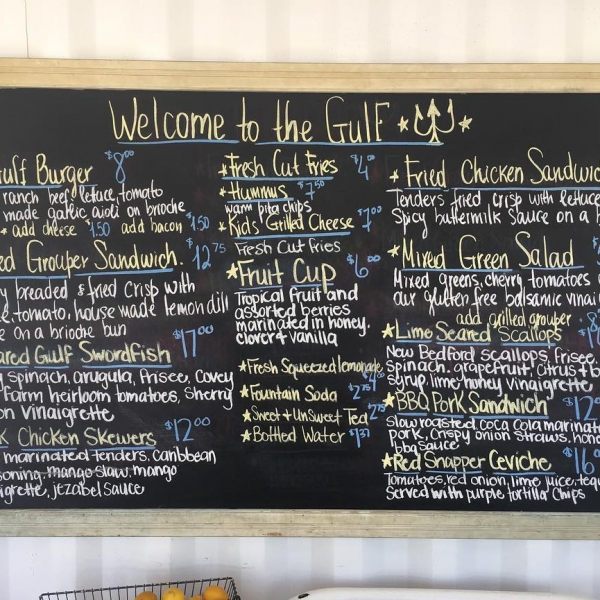 Welcome to the Gulf
Gulf Burger $8.00
ranch beef, lettuce, tomato
made garlic aioli on brioche
+ add cheese $1.50 add bacon $1.50
ed Grouper Sandwich. $12.75
y breaded & fried crisp with
e, tomato, house made lemon dill
e on a brioche bun
ared Gulf Swordfish $17.00
y spinach, arugula, frisee, Covey
Farm heirloom tomatoes, sherry
on vinaigrette
k Chicken Skewers $12.00
marinated tenders, caribbean
soning, mango slaw, mango
igrette, jezabel sauce
Fresh Cut Fries $4.00
Hummus $7.50
warm pita chips
Kids Grilled Cheese $7.00
Fresh Cut Fries
Fruit Cup $6.00
Tropical fruit and
assorted berries
marinated in honey,
clover & vanilla
Fresh Squeezed lemonade
Fountain Soda $2.75
Sweet & UnSweet Tea 2.75
Bottled Water $1.37
Fried Chicken Sandwic
Tenders fried crisp with lettuce
Spicy buttermilk sauce on a
Mixed Green Salad
Mixed greens, cherry tomatoes
our gluten free balsamic vinai
add grilled grouper
Lime Seared Scallops
New Bedford scallops, frisee,
Spinach, grapefruit, citrus + b
syrup, lime honey vinaigrette
BBQ Pork Sandwich $12
Slow roasted coca cola marinat
pork, crispy onion straws, hone
bbq sauce
Red Snapper Ceviche $16
Tomatoes, red onion, lime juice, tequ
Served with purple tortilla chips